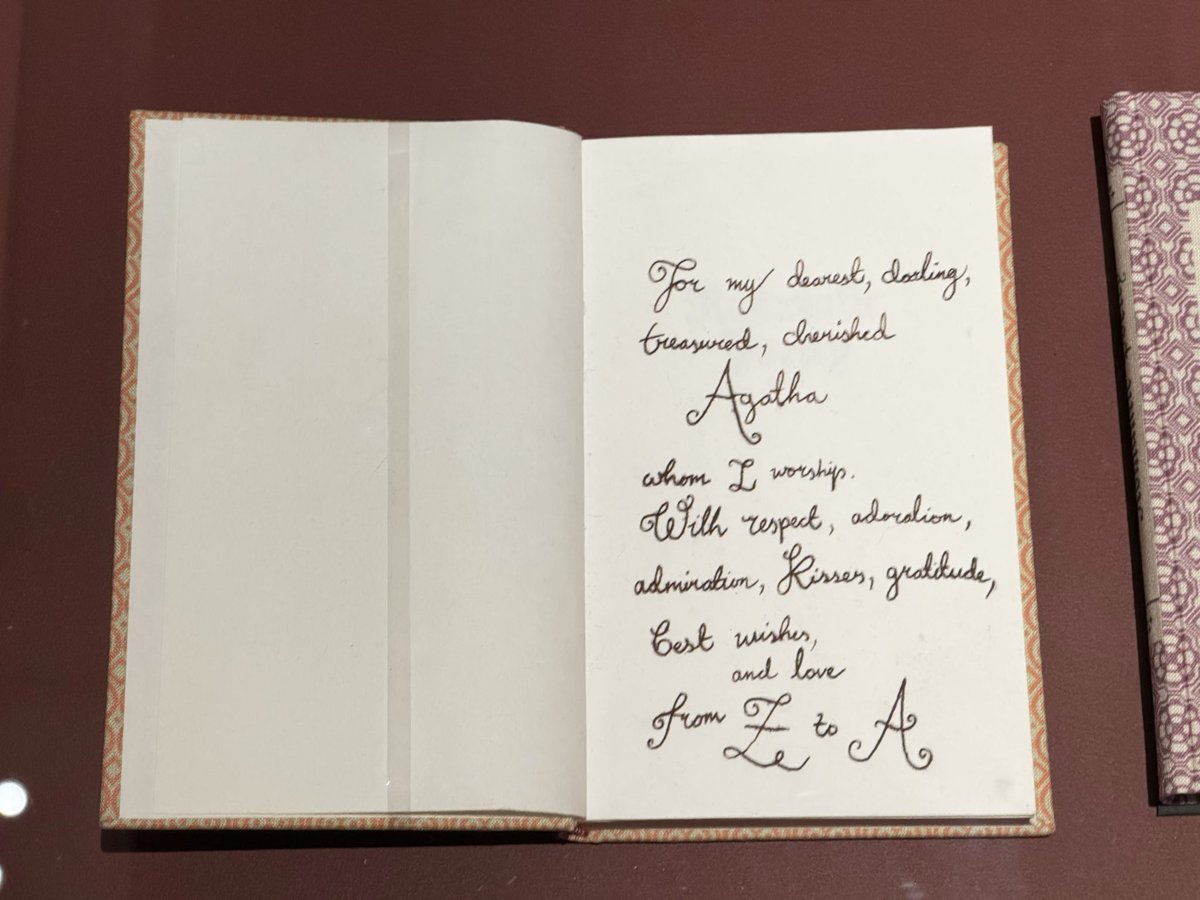 For my dearest, darling,
treasured, cherished
Agatha
whom I worship.
With respect, adoration,
admiration, Kisses, gratitude,
best wishes,
and love
from Z to A